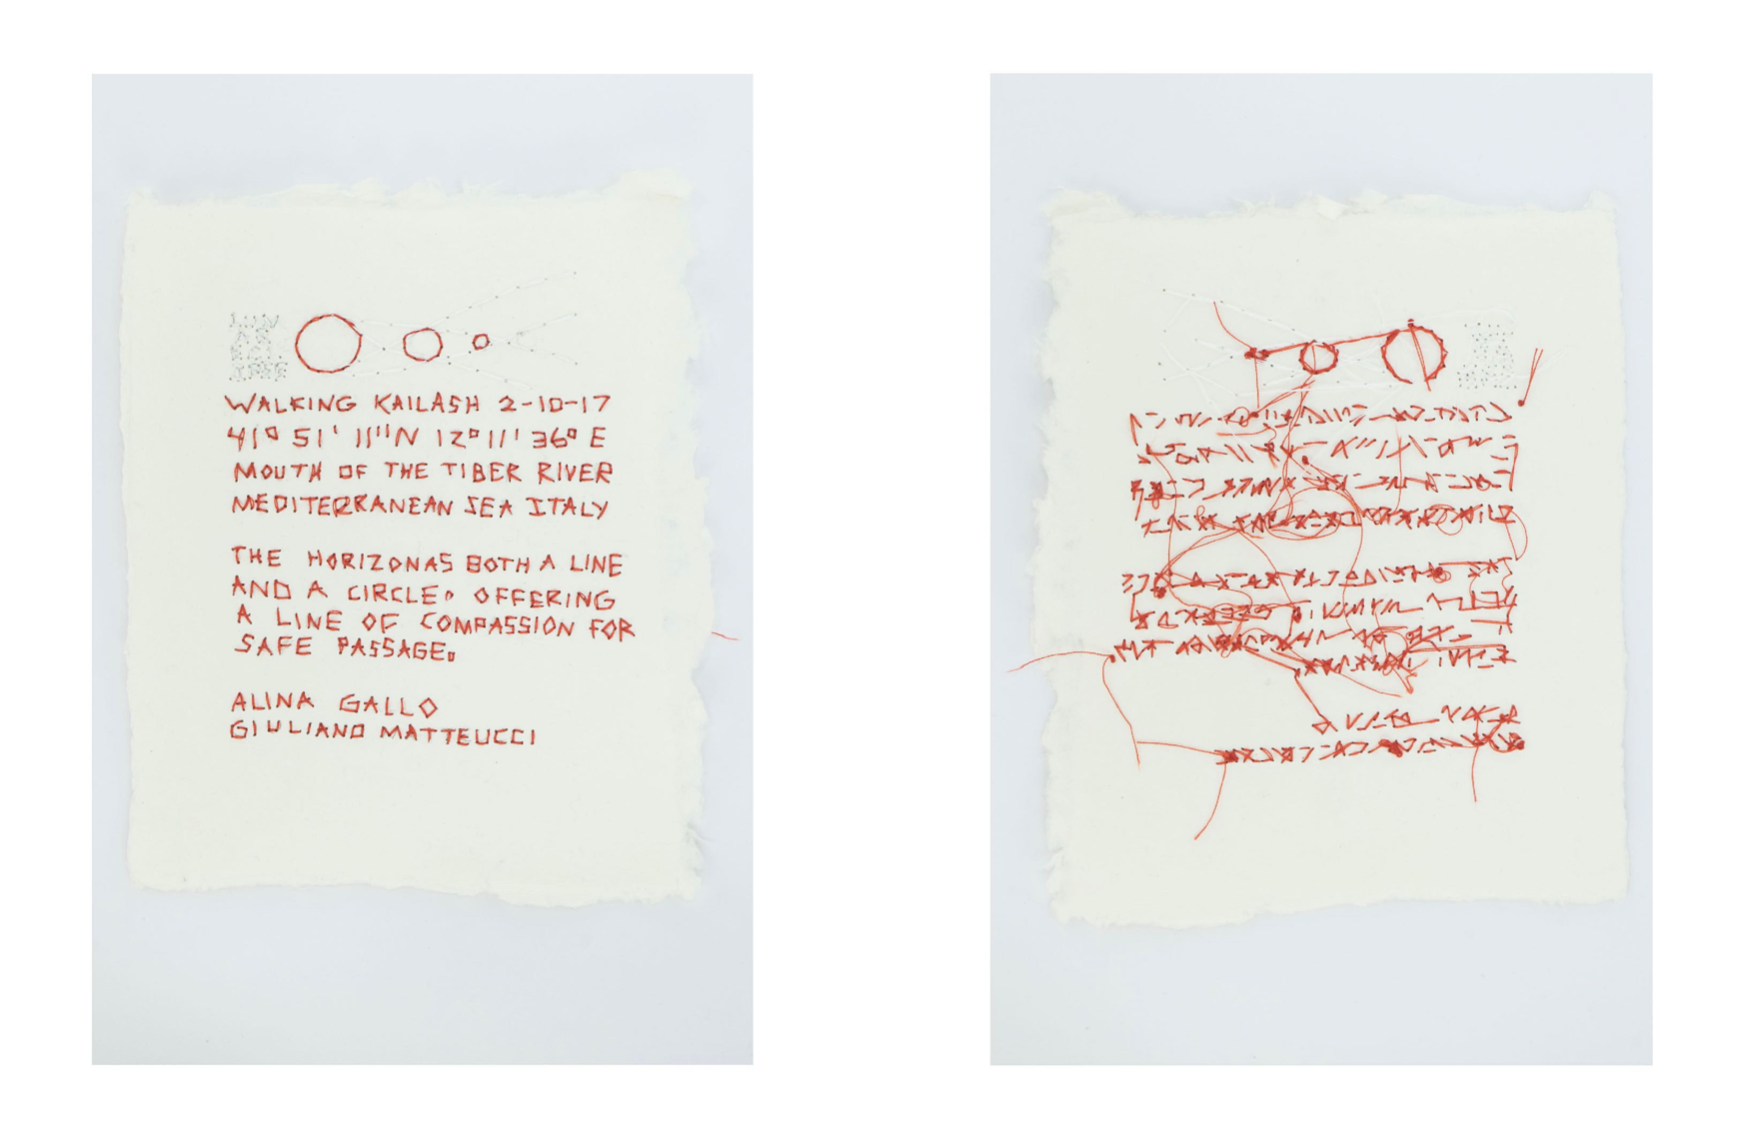 WALKING KAILASH 2-10-17
41° 51' 11"N 12° 11' 36° E
MOUTH OF THE TIBER RIVER
MEDITERRANEAN SEA ITALY
THE HORIZON AS BOTH A LINE
AND A CIRCLE. OFFERING
A LINE OF COMPASSION FOR
SAFE PASSAGE.
ALINA GALLO
GIULIANO MATTEUCCI